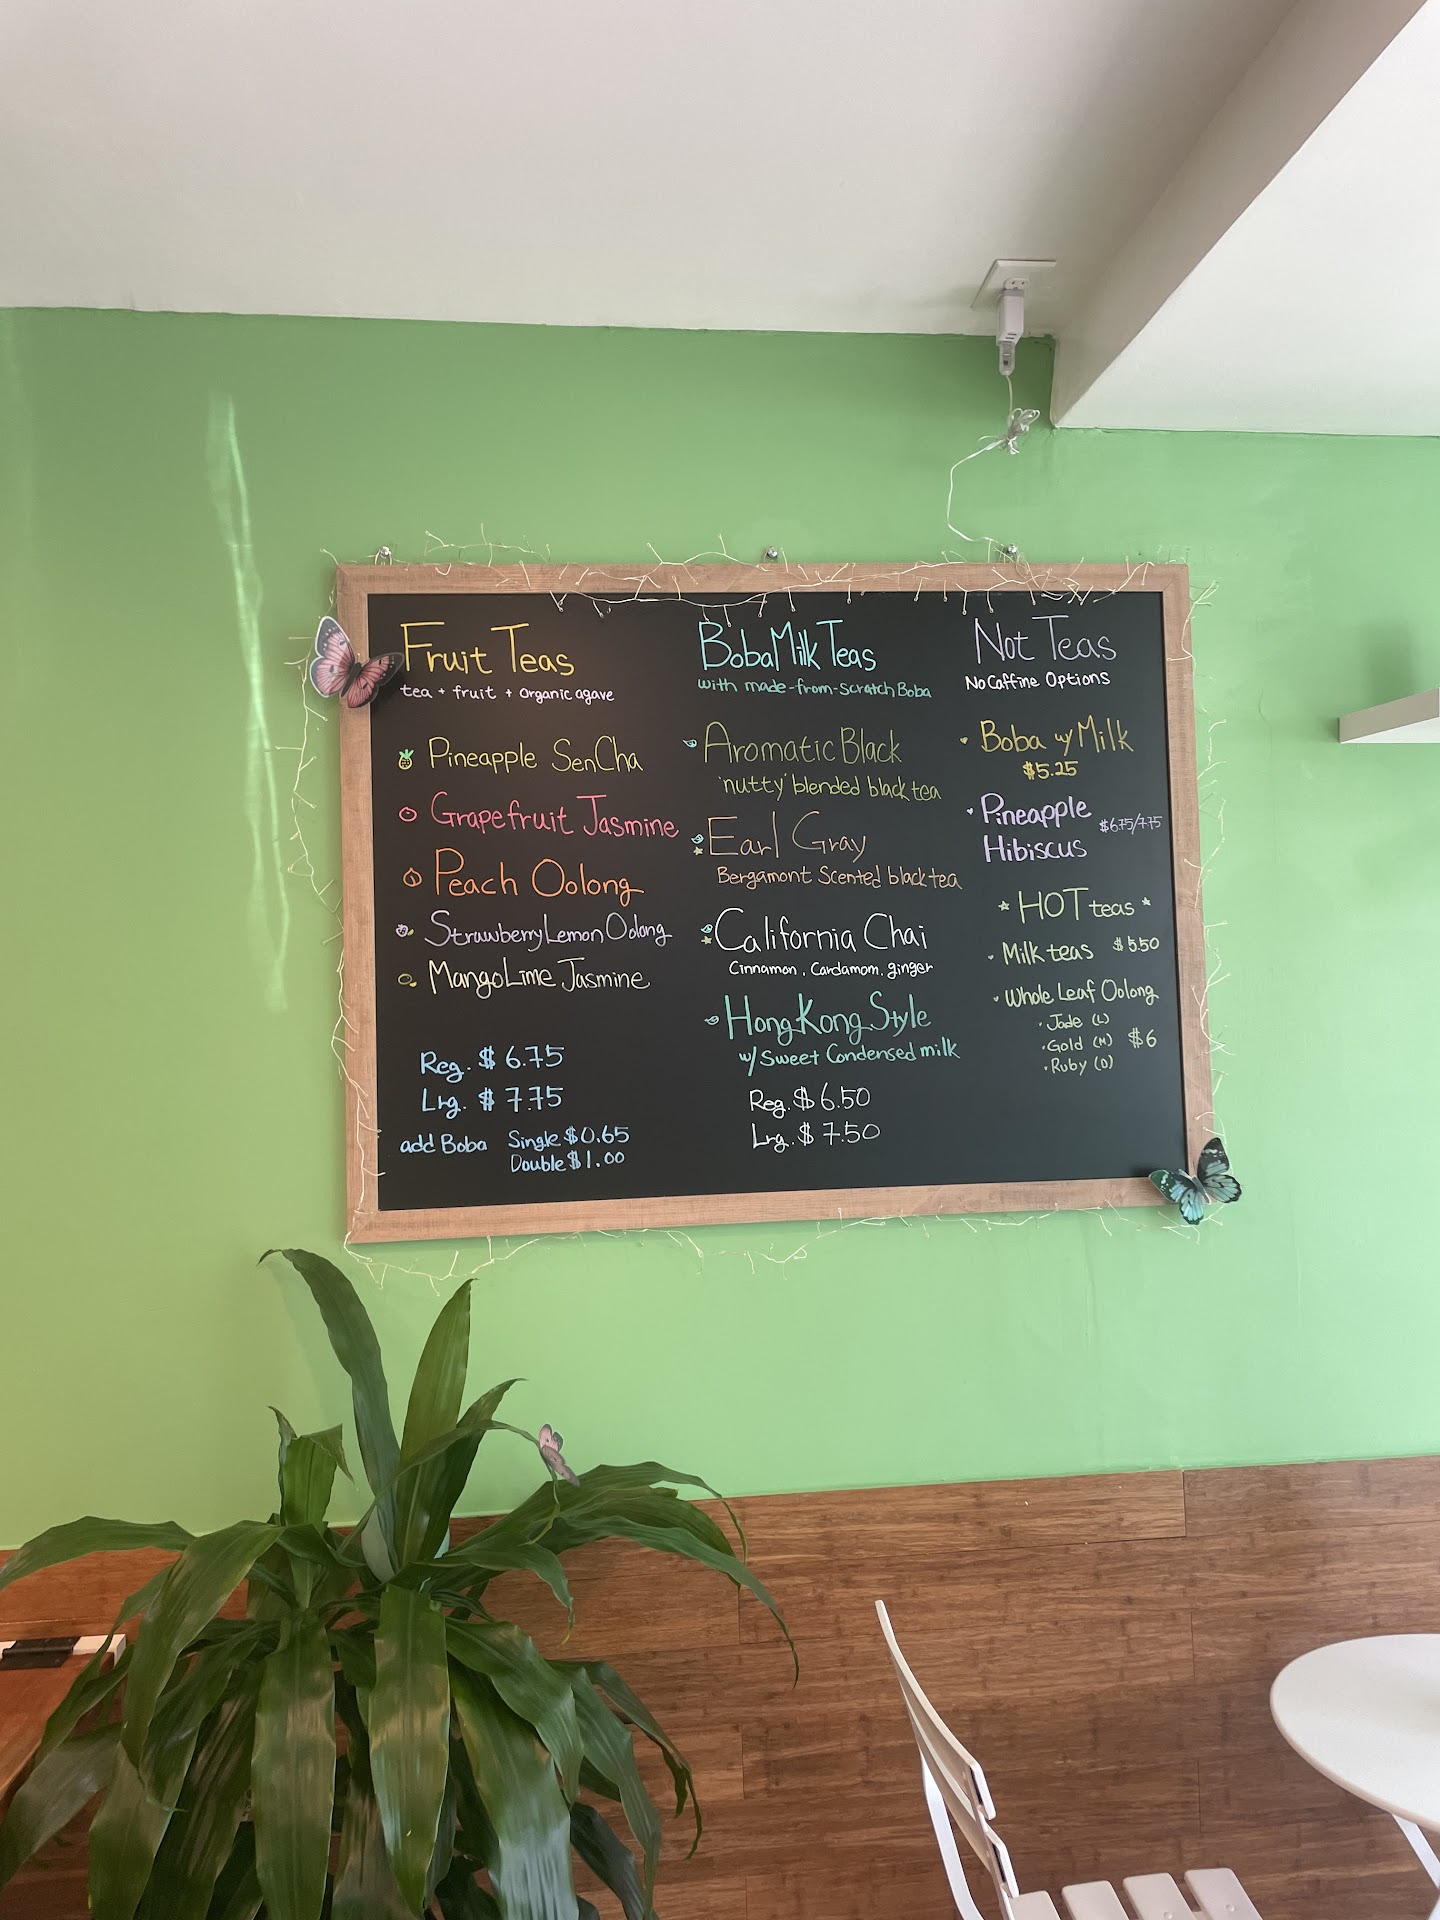 Fruit Teas
tea + fruit + organic agave
Pineapple SenCha
Grapefruit Jasmine
Peach Oolong
Strawberry Lemon Oolong
Mango Lime Jasmine
Reg. $ 6.75
Lrg. $ 7.75
add Boba Single $0.65
Double $1.00
Boba Milk Teas
with made-from-scratch Boba
Aromatic Black
'nutty' blended black tea
Earl Gray
Bergamont Scented black tea
California Chai
Cinnamon, Cardamom, ginger
Hong Kong Style
w/ Sweet Condensed milk
Reg. $ 6.50
Lrg. $ 7.50
Not Teas
No Caffine Options
Boba w/ Milk
$5.25
Pineapple $6.75/7.75
Hibiscus
* HOT teas *
Milk teas $5.50
Whole Leaf Oolong
Jade (L)
Gold (M) $6
Ruby (D)